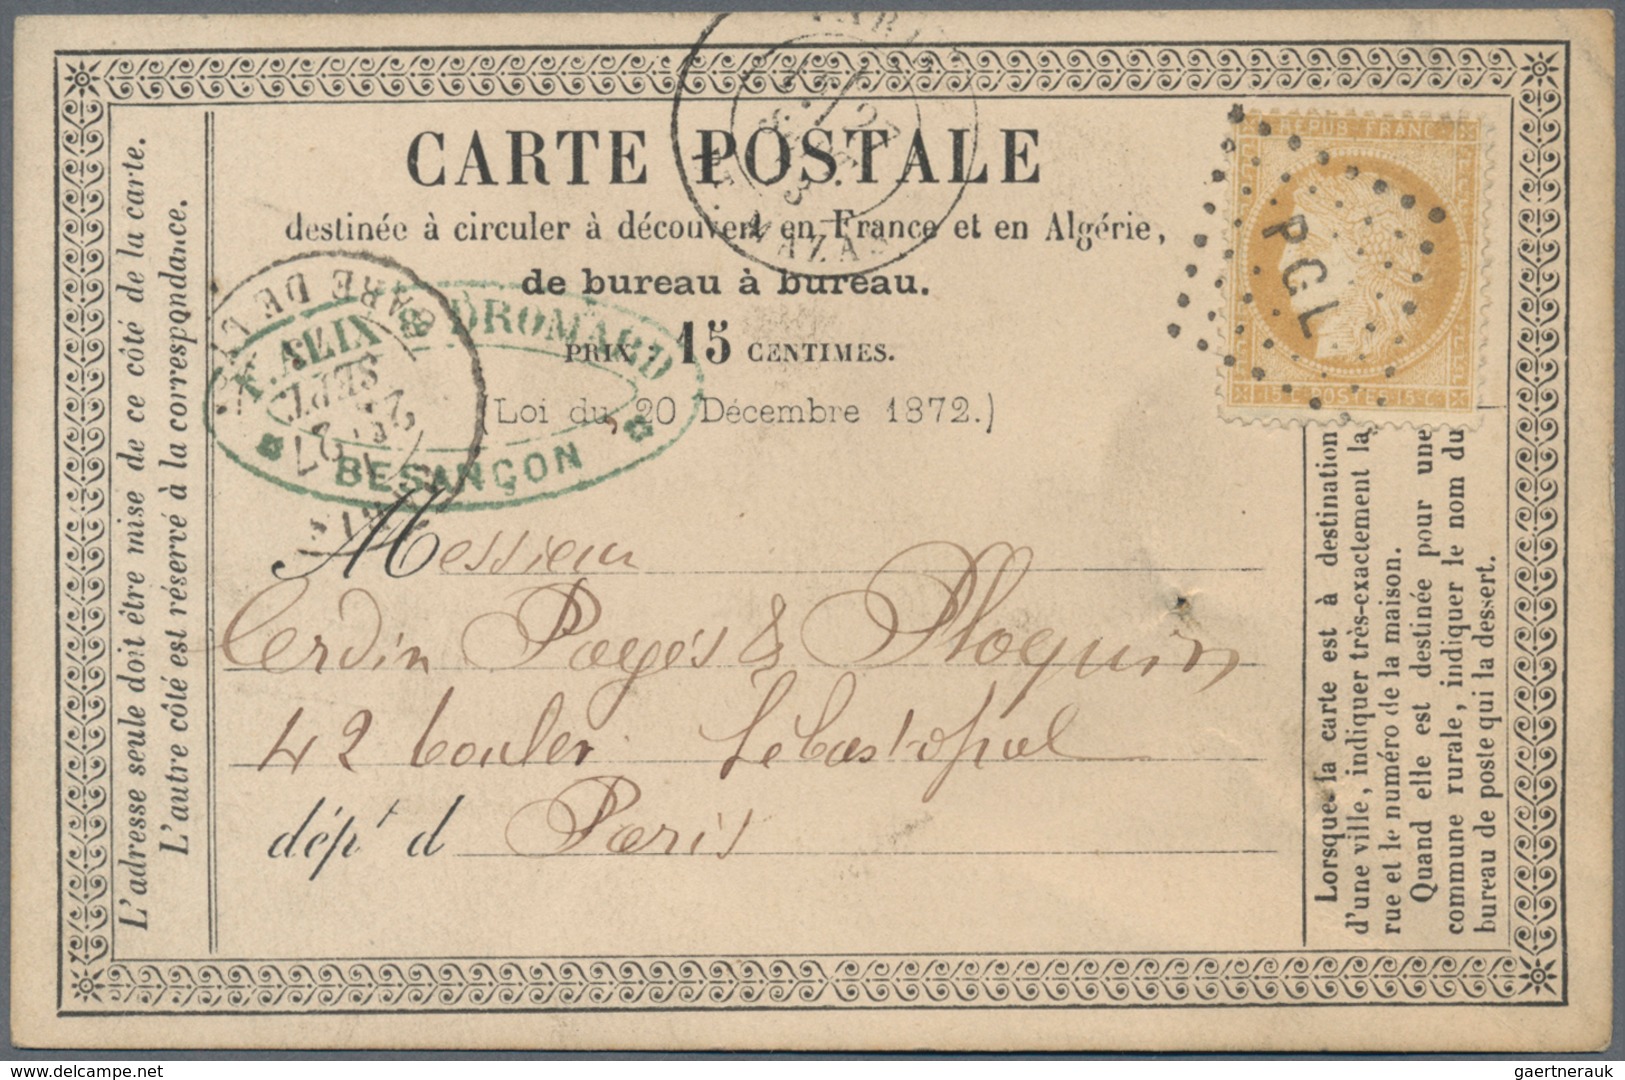 CARTE POSTALE
destinée à circuler à découvert en France et en Algérie,
de bureau à bureau.
PRIX 15 CENTIMES.
(Loi du 20 Décembre 1872.)
L'adresse seule doit être mise de ce côté de la carte.
L'autre côté est réservé à la correspondance.
REPUB FRANC
15 C POSTES 15 C
PGL
27
GARE DE
SEPT
27
ALIX & DROMARD
BESANÇON
Messieur
Cerdin Pagés & Ploquin
42 bouler Sébastopol
dép^t d Paris
Lorsque la carte est à destination
d'une ville, indiquer très-exactement la
rue et le numéro de la maison.
Quand elle est destinée pour une
commune rurale, indiquer le nom du
bureau de poste qui la dessert.
www.delcampe.net
gaertnerauk